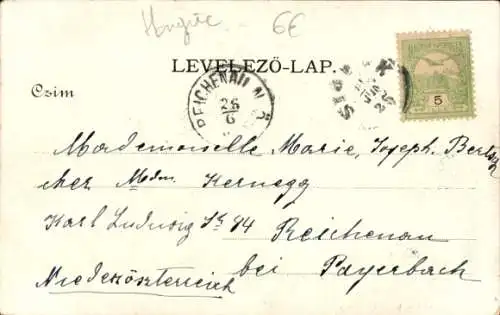 6€
LEVELEZŐ-LAP.
Czim
REICHENAU N.Ö.
26
6
5
Mademoiselle Marie, Joseph.
chez Mdm Kernegg
Karl Ludwig St 94 Reichenau
Niederösterreich bei Payerbach